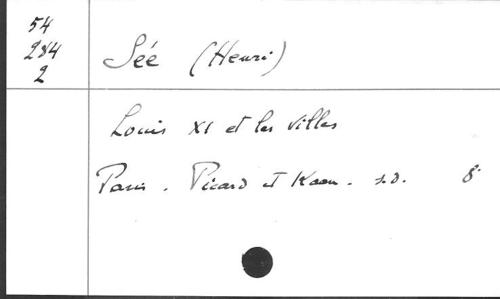 54
284
2
Sée (Henri)
Louis XI et les villes
Paris. Picard et Kaan. s.d. 8°